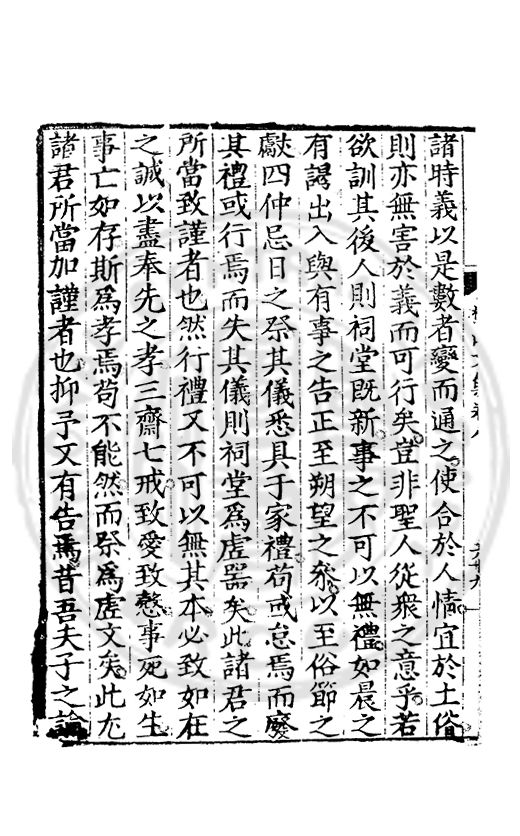 諸時義以是數者變而通之使合於人情宜於土俗
則亦無害於義而可行矣豈非聖人從衆之意乎若
欲訓其後人則祠堂旣新事之不可以無禮如晨之
有謁出入與有事之告正至朔望之參以至俗節之
獻四仲忌日之祭其儀悉具于家禮苟或怠焉而廢
其禮或行焉而失其儀則祠堂爲虛器矣此諸君之
所當致謹者也然行禮又不可以無其本必致如在
之誠以盡奉先之孝三齋七戒致愛致慤事死如生
事亡如存斯爲孝焉苟不能然而祭爲虛文矣此尤
諸君所當加謹者也抑予又有告焉昔吾夫子之論